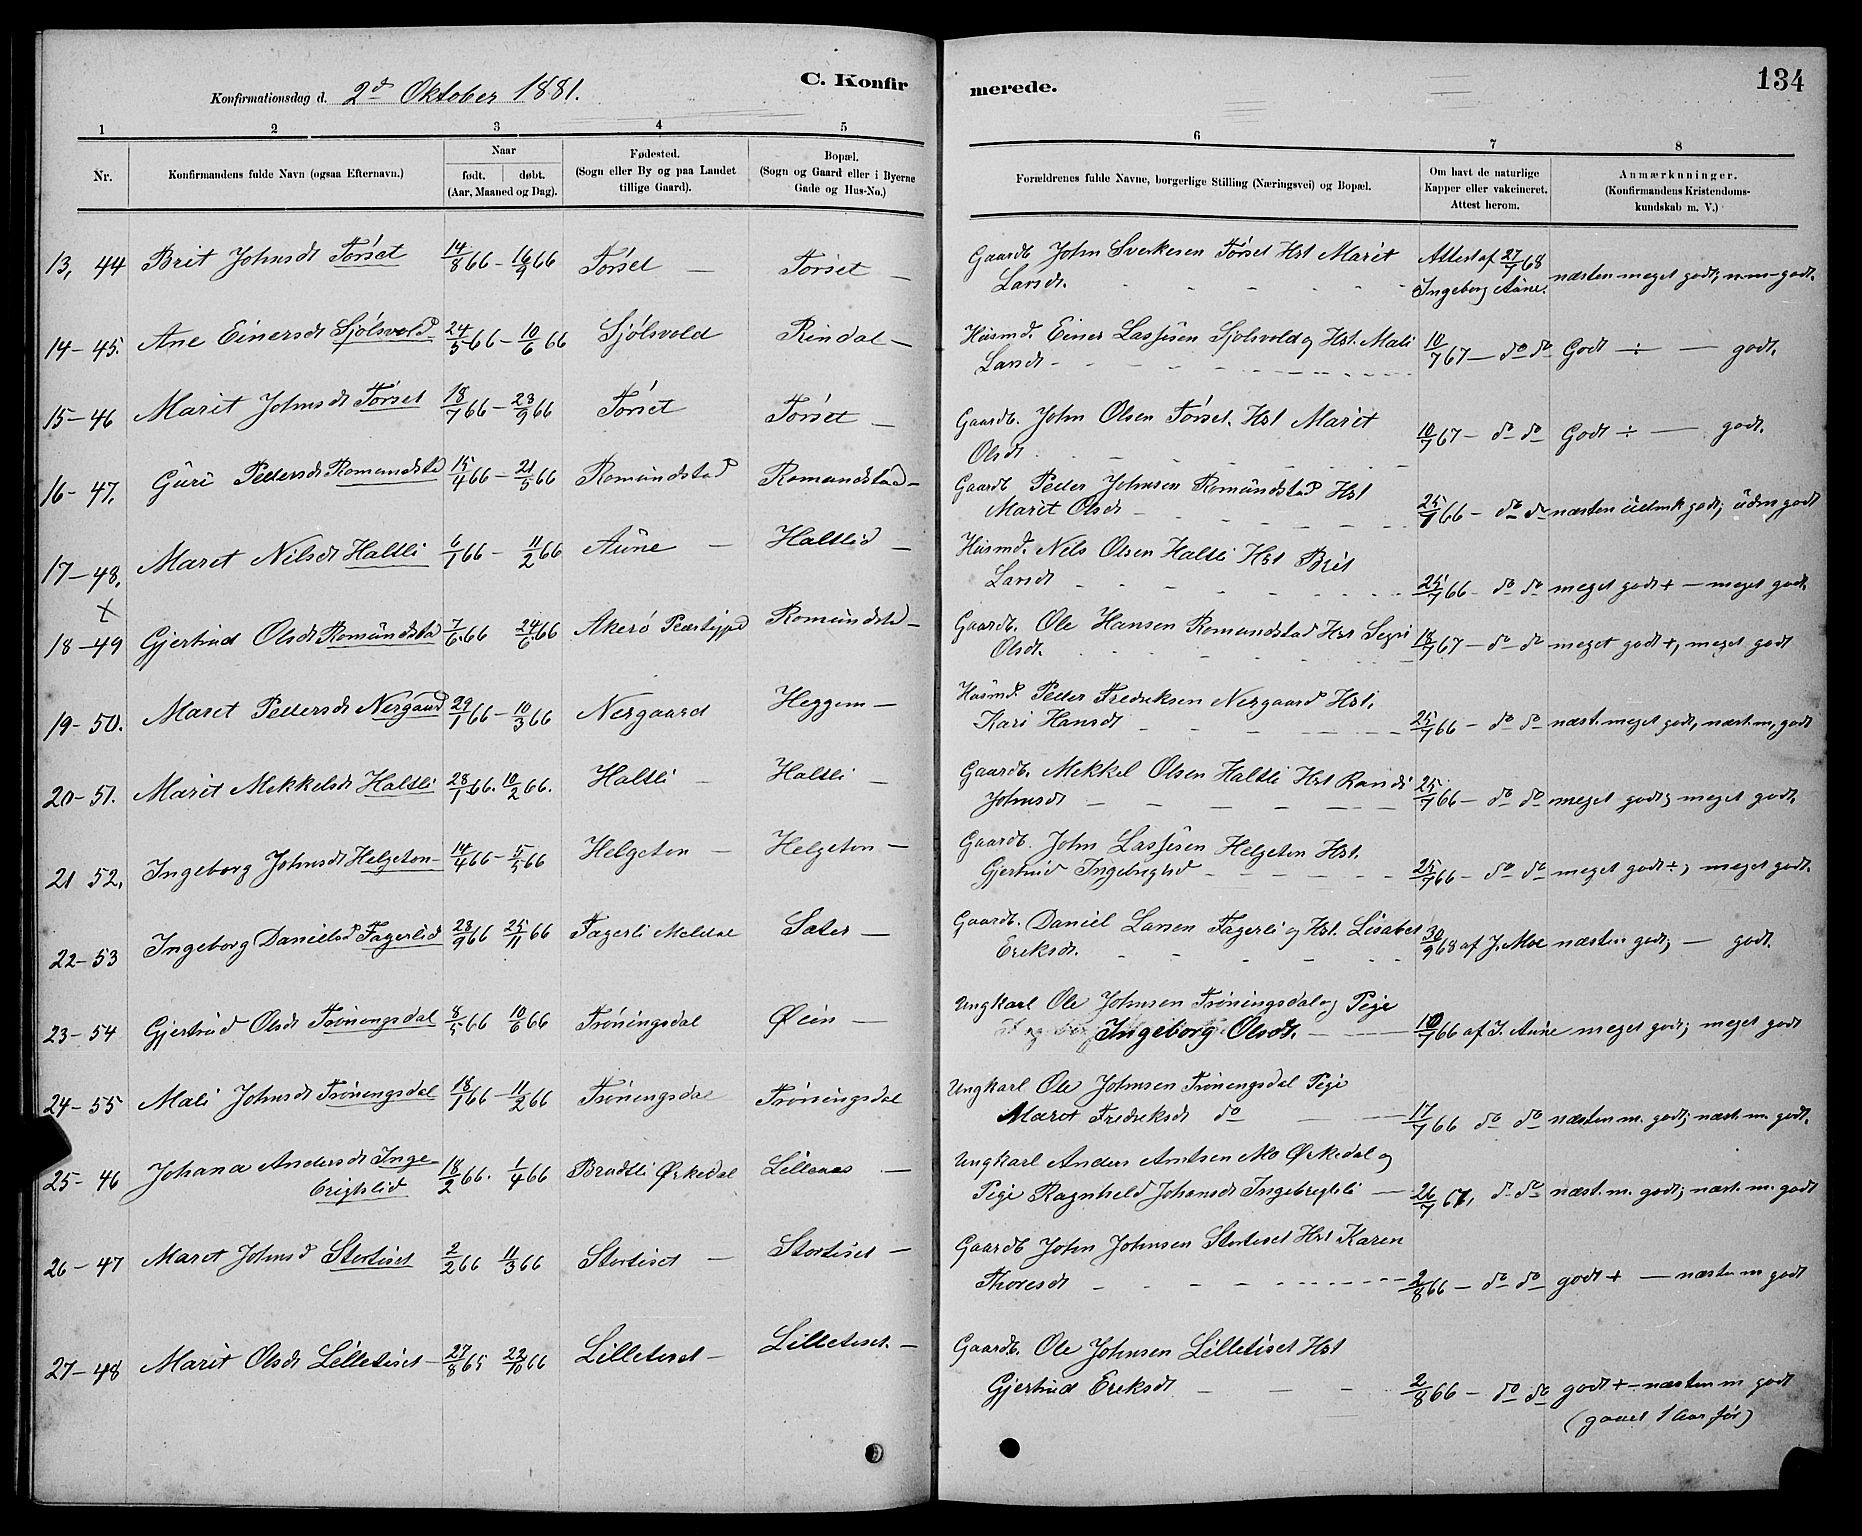 Konfirmationsdag d. 2d Oktober 1881.
C. Konfirmerede.
134
1 2 3 4 5 6 7 8
Nr.
Konfirmandens fulde Navn (ogsaa Efternavn.)
Naar
født. døbt.
(Aar, Maaned og Dag).
Fødested.
(Sogn eller By og paa Landet
tillige Gaard).
Bopæl.
(Sogn og Gaard eller i Byerne
Gade og Hus-No.)
Forældrenes fulde Navne, borgerlige Stilling (Næringsvei) og Bopæl.
Om havt de naturlige
Kapper eller vakcineret.
Attest herom.
Anmærknninger.
(Konfirmandens Kristendoms-
kundskab m. V.)
13, 44 Brit Johnsdt Tørset 14/8 66 - 16/9 66 Tørset — Tørset — Gaardb. John Sverkesen Tørset Hst Marit Attest af 27/7 68
Larsdt. Ingeborg Aune. næsten meget godt; n.m-godt.
14-45. Ane Einersdt Sjólsvold 24/5 66 - 10/6 66 Sjólsvold Rindal — Husmd. Einer Lassesen Sjolsvold og Hst. Mali
Larsdt - 10/7 67 — do do Godt ÷ — godt.
15-46 Marit Johnsdt Tørset 18/7 66 - 23/9 66 Tørset Tørset — Gaardb. John Olsen Tørset. Hst Marit
Olsdt 10/7 67 - do do Godt ÷ — godt.
16-47, Guri Pedersdt Romundsta 15/4 66 - 21/5 66 Romundstad Romundstad — Gaardb Peder Johnsen Romundstad Hst
Marit Olsdt - 25/7 66 - do do næsten udmk godt; udm godt
17-48, Maret Nilsdt Haltli 6/1 66 - 11/2 66 Aune — Haltlid — Husmd. Nels Olsen Haltli Hst Brit
Larsdt 25/7 66 - do do meget godt + — meget godt.
x
18-49 Gjertrud Olsdt Romundsta 7/6 66 24/6 66 Akerø Romundsta — Gaardb. Ole Hansen Romundstad Hst Segri
Olsdt. 18/7 67 - do do meget godt +, meget godt
19-50. Maret Pedersdt Nergaard 29/1 66 - 10/3 66 Nergaard Heggem — Husmd. Peder Fredreksen Nergaard Hst.
Kari Hansdt 25/7 66 - do do næst. meget godt, næst. m, godt
20-51. Marit Mekkelsdt Haltli 28/1 66. 10/2 66. Haltli — Haltli — Gaardb. Mekkel Olsen Haltli Hst Randi
Johnsdt — 25/7 66 - do do meget godt; meget godt.
21 52. Ingeborg Johnsdt Helgeton 14/4 66 - 5/5 66 Helgeton — Helgeton — Gaardb. John Lassesen Helgeton Hst.
Gjertrud Ingebrigtsd 25/7 66 - do do meget godt ÷, meget godt.
22-53 Ingeborg Danielsd Fagerlid 28/9 66 25/11 66 Fagerli Meldal Sæter — Gaardb. Daniel Larsen Fagerli og Hst. Lisabet
Ereksdt. 30/9 68 af J. Moe næsten godt; — godt.
23-54 Gjertrud Olsdt Trøningsdal 8/5 66 10/6 66 Trøningsdal Øien — Ungkarl Ole Johnsen Trøningsdal og Pige
Ingeborg Olsdt. — 10/7 66 af I. Aune meget godt; meget godt
24-55 Mali Johnsdt Trøningsdal 18/1 66 - 11/2 66 Trøningsdal Trøningsdal Ungkarl Ole Johnsen Trøningsdal Pige
Maret Fredreksdt do 17/7 66 do do næsten m. godt; næst. m. godt.
25-46 Johana Andersdt Inge- 18/2 66. 1/4 66 Bradtli Ørkedal Lillenes — Ungkarl Anders Arntsen Mo Ørkedal og
brigtslid Pige Ragnheld Johansdt Ingebregtsli — 26/7 67, do do næst. m. godt; næst. m. godt
26-47 Maret Johnsd Stortiset 2/2 66 11/3 66 Stortiset — Stortiset — Gaardb John Johnsen Stortiset Hst Karen
Thoresdt 2/8 66 — do do godt + — næsten m godt
27-48 Marit Olsdt Lilletiset 27/8 65 22/10 66 Lilletiset — Lilletiset. — Gaardb. Ole Johnsen Lilletiset Hst
Gjertrud Ereksdt 2/8 66 — do do godt + - næsten m godt
(gaaet 1 Aar før)